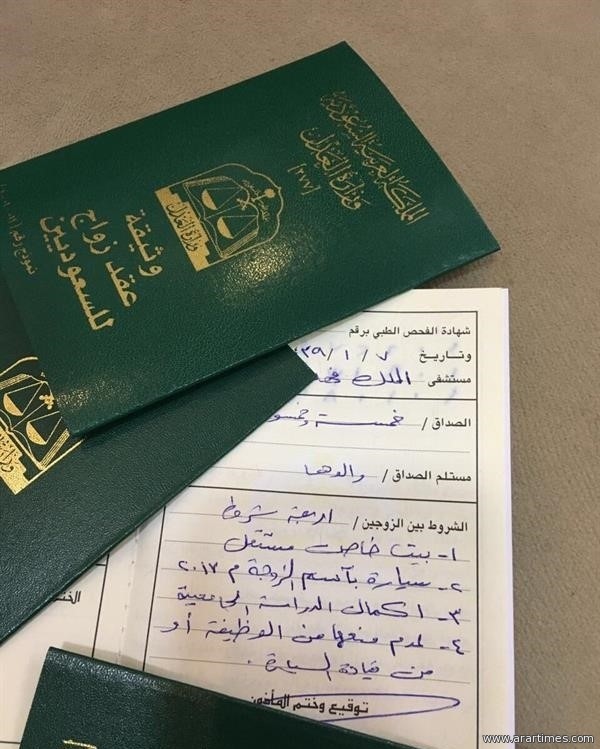 المملكة العربية السعودية
وزارة العدل
[٢٧٧]
وزارة العدل
وثيقة
عقد زواج
للسعوديين
نموذج رقم
شهادة الفحص الطبي برقم
وتاريخ ٧ / ١ / ٣٩
مستشفى الملك
الصداق / خمسة
مستلم الصداق / والدها
الشروط بين الزوجين / اربعة شروط
١- بيت خاص مستقل
٢- سيارة بأسم الزوجة م ٢٠١٧
٣- اكمال الدراسة الجامعية
٤- عدم منعها من الوظيفة أو
من قيادة السيارة.
توقيع وختم المأذون
www.arartimes.com